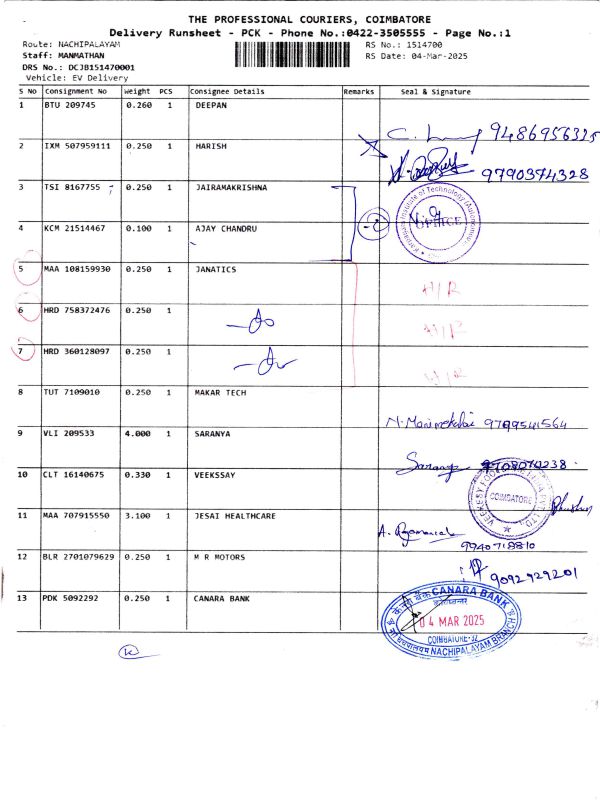 THE PROFESSIONAL COURIERS, COIMBATORE
Delivery Runsheet - PCK - Phone No.:0422-3505555 - Page No.:1
Route: NACHIPALAYAM RS No.: 1514700
Staff: MANMATHAN RS Date: 04-Mar-2025
DRS No.: DCJB151470001
Vehicle: EV Delivery
S No Consignment No Weight PCS Consignee Details Remarks Seal & Signature
1 BTU 209745 0.260 1 DEEPAN
9486956325
2 IXM 507959111 0.250 1 HARISH
9790374328
3 TSI 8167755 0.250 1 JAIRAMAKRISHNA
Institute of Technology
OFFICE
4 KCM 21514467 0.100 1 AJAY CHANDRU
5 MAA 108159930 0.250 1 JANATICS
N/R
6 HRD 758372476 0.250 1
N/R
7 HRD 360128097 0.250 1
N/R
8 TUT 7109010 0.250 1 MAKAR TECH
N. Manimekalai 9789541564
9 VLI 209533 4.000 1 SARANYA
Saranya 9708070238
10 CLT 16140675 0.330 1 VEEKSSAY
COIMBATORE
11 MAA 707915550 3.100 1 JESAI HEALTHCARE
9940718810
12 BLR 2701079629 0.250 1 M R MOTORS
9092929201
13 PDK 5092292 0.250 1 CANARA BANK
केनरा बैंक CANARA BANK
04 MAR 2025
COIMBATORE-32
NACHIPALAYAM BRANCH